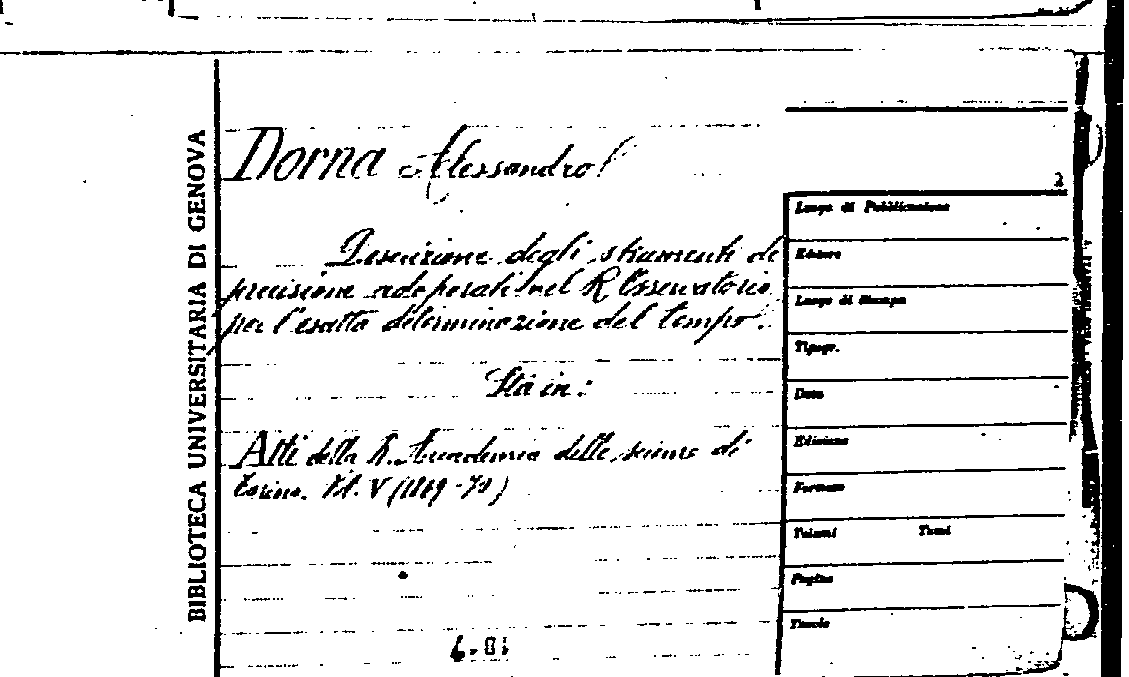 BIBLIOTECA UNIVERSITARIA DI GENOVA
Dorna Alessandro
Descrizione degli strumenti di
precisione adoperati nel R. Osservatorio
per l'esatta determinazione del tempo.
Sta in:
Atti della R. Accademia delle scienze di
Torino. Vol. V (1869-70)
2
Luogo di Pubblicazione
Editore
Luogo di Stampa
Tipogr.
Data
Edizione
Formato
Volumi Tomi
Pagine
Tavole